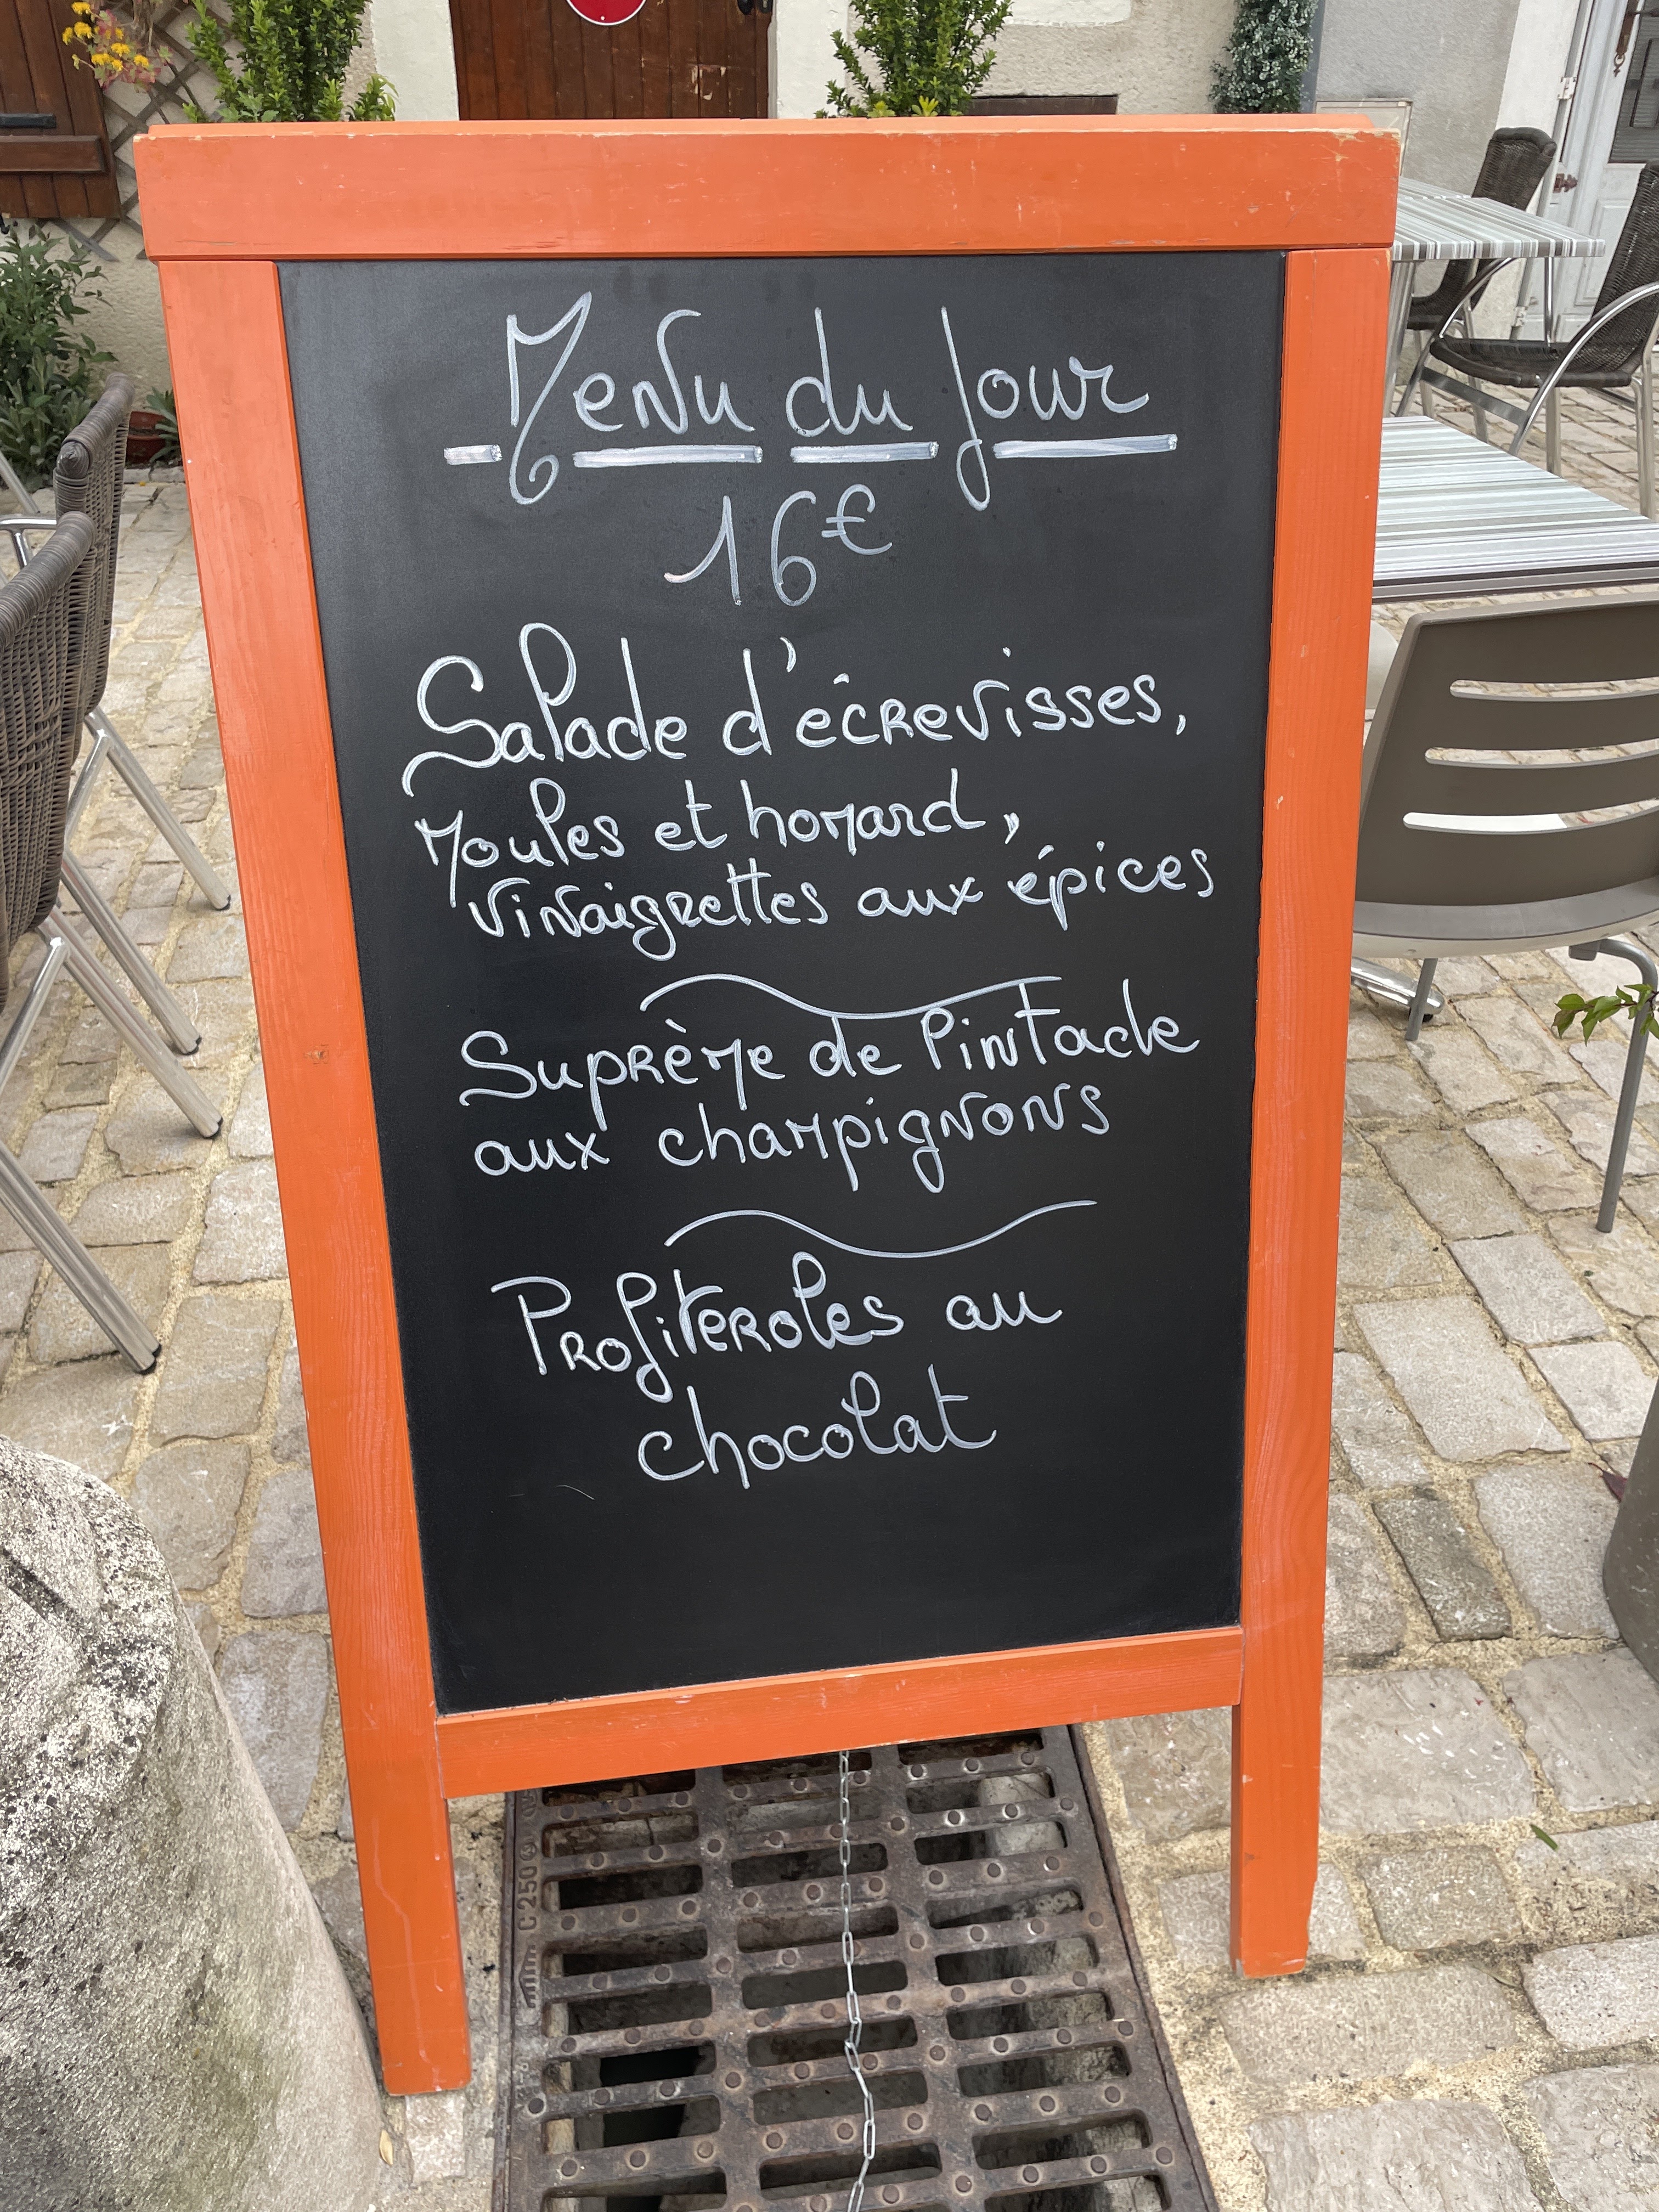 Menu du Jour
16€
Salade d'écrevisses,
Moules et homard,
Vinaigrettes aux épices
Suprème de Pintade
aux champignons
Profiteroles au
chocolat
C 250